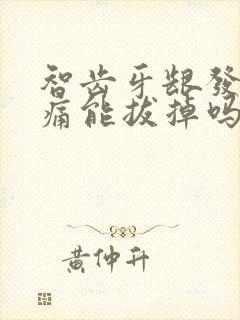 智齿牙龈發
痛能拔掉吗
黄仲升